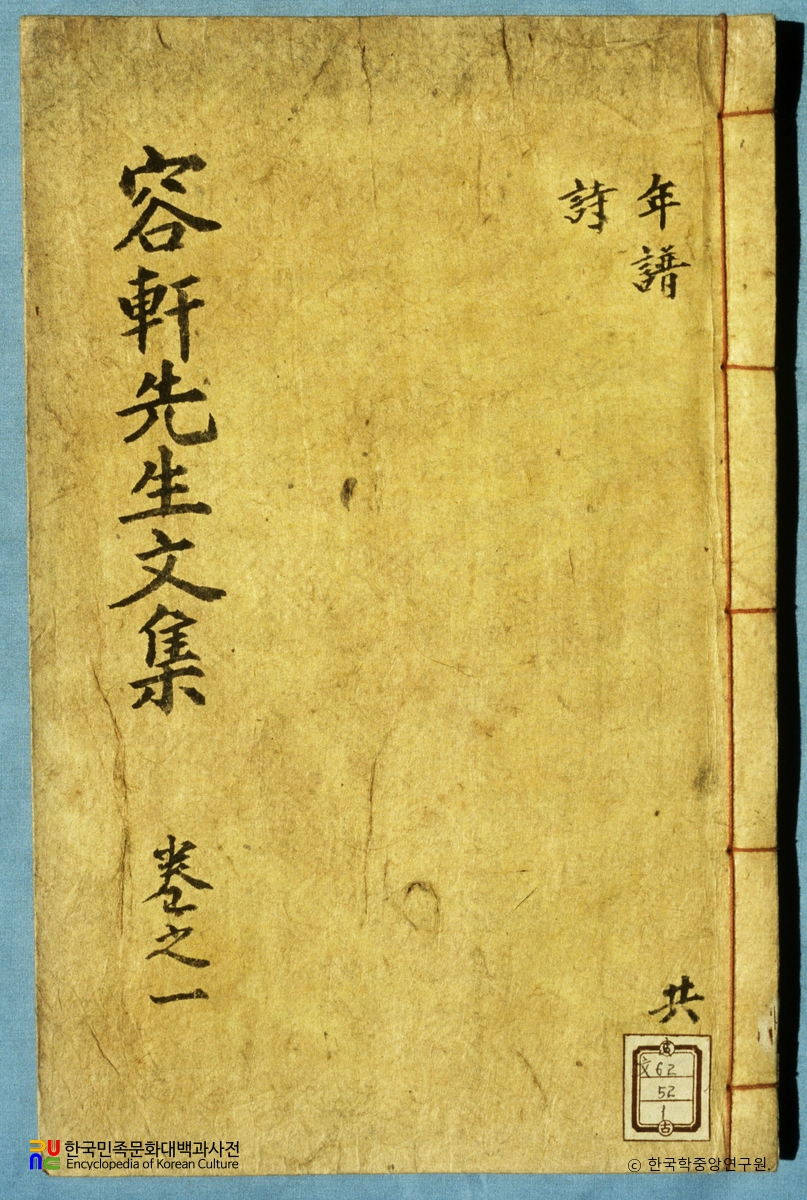 年譜
詩
容軒先生文集
卷之一
共
文62
52
1
古
한국민족문화대백과사전
Encyclopedia of Korean Culture
© 한국학중앙연구원.